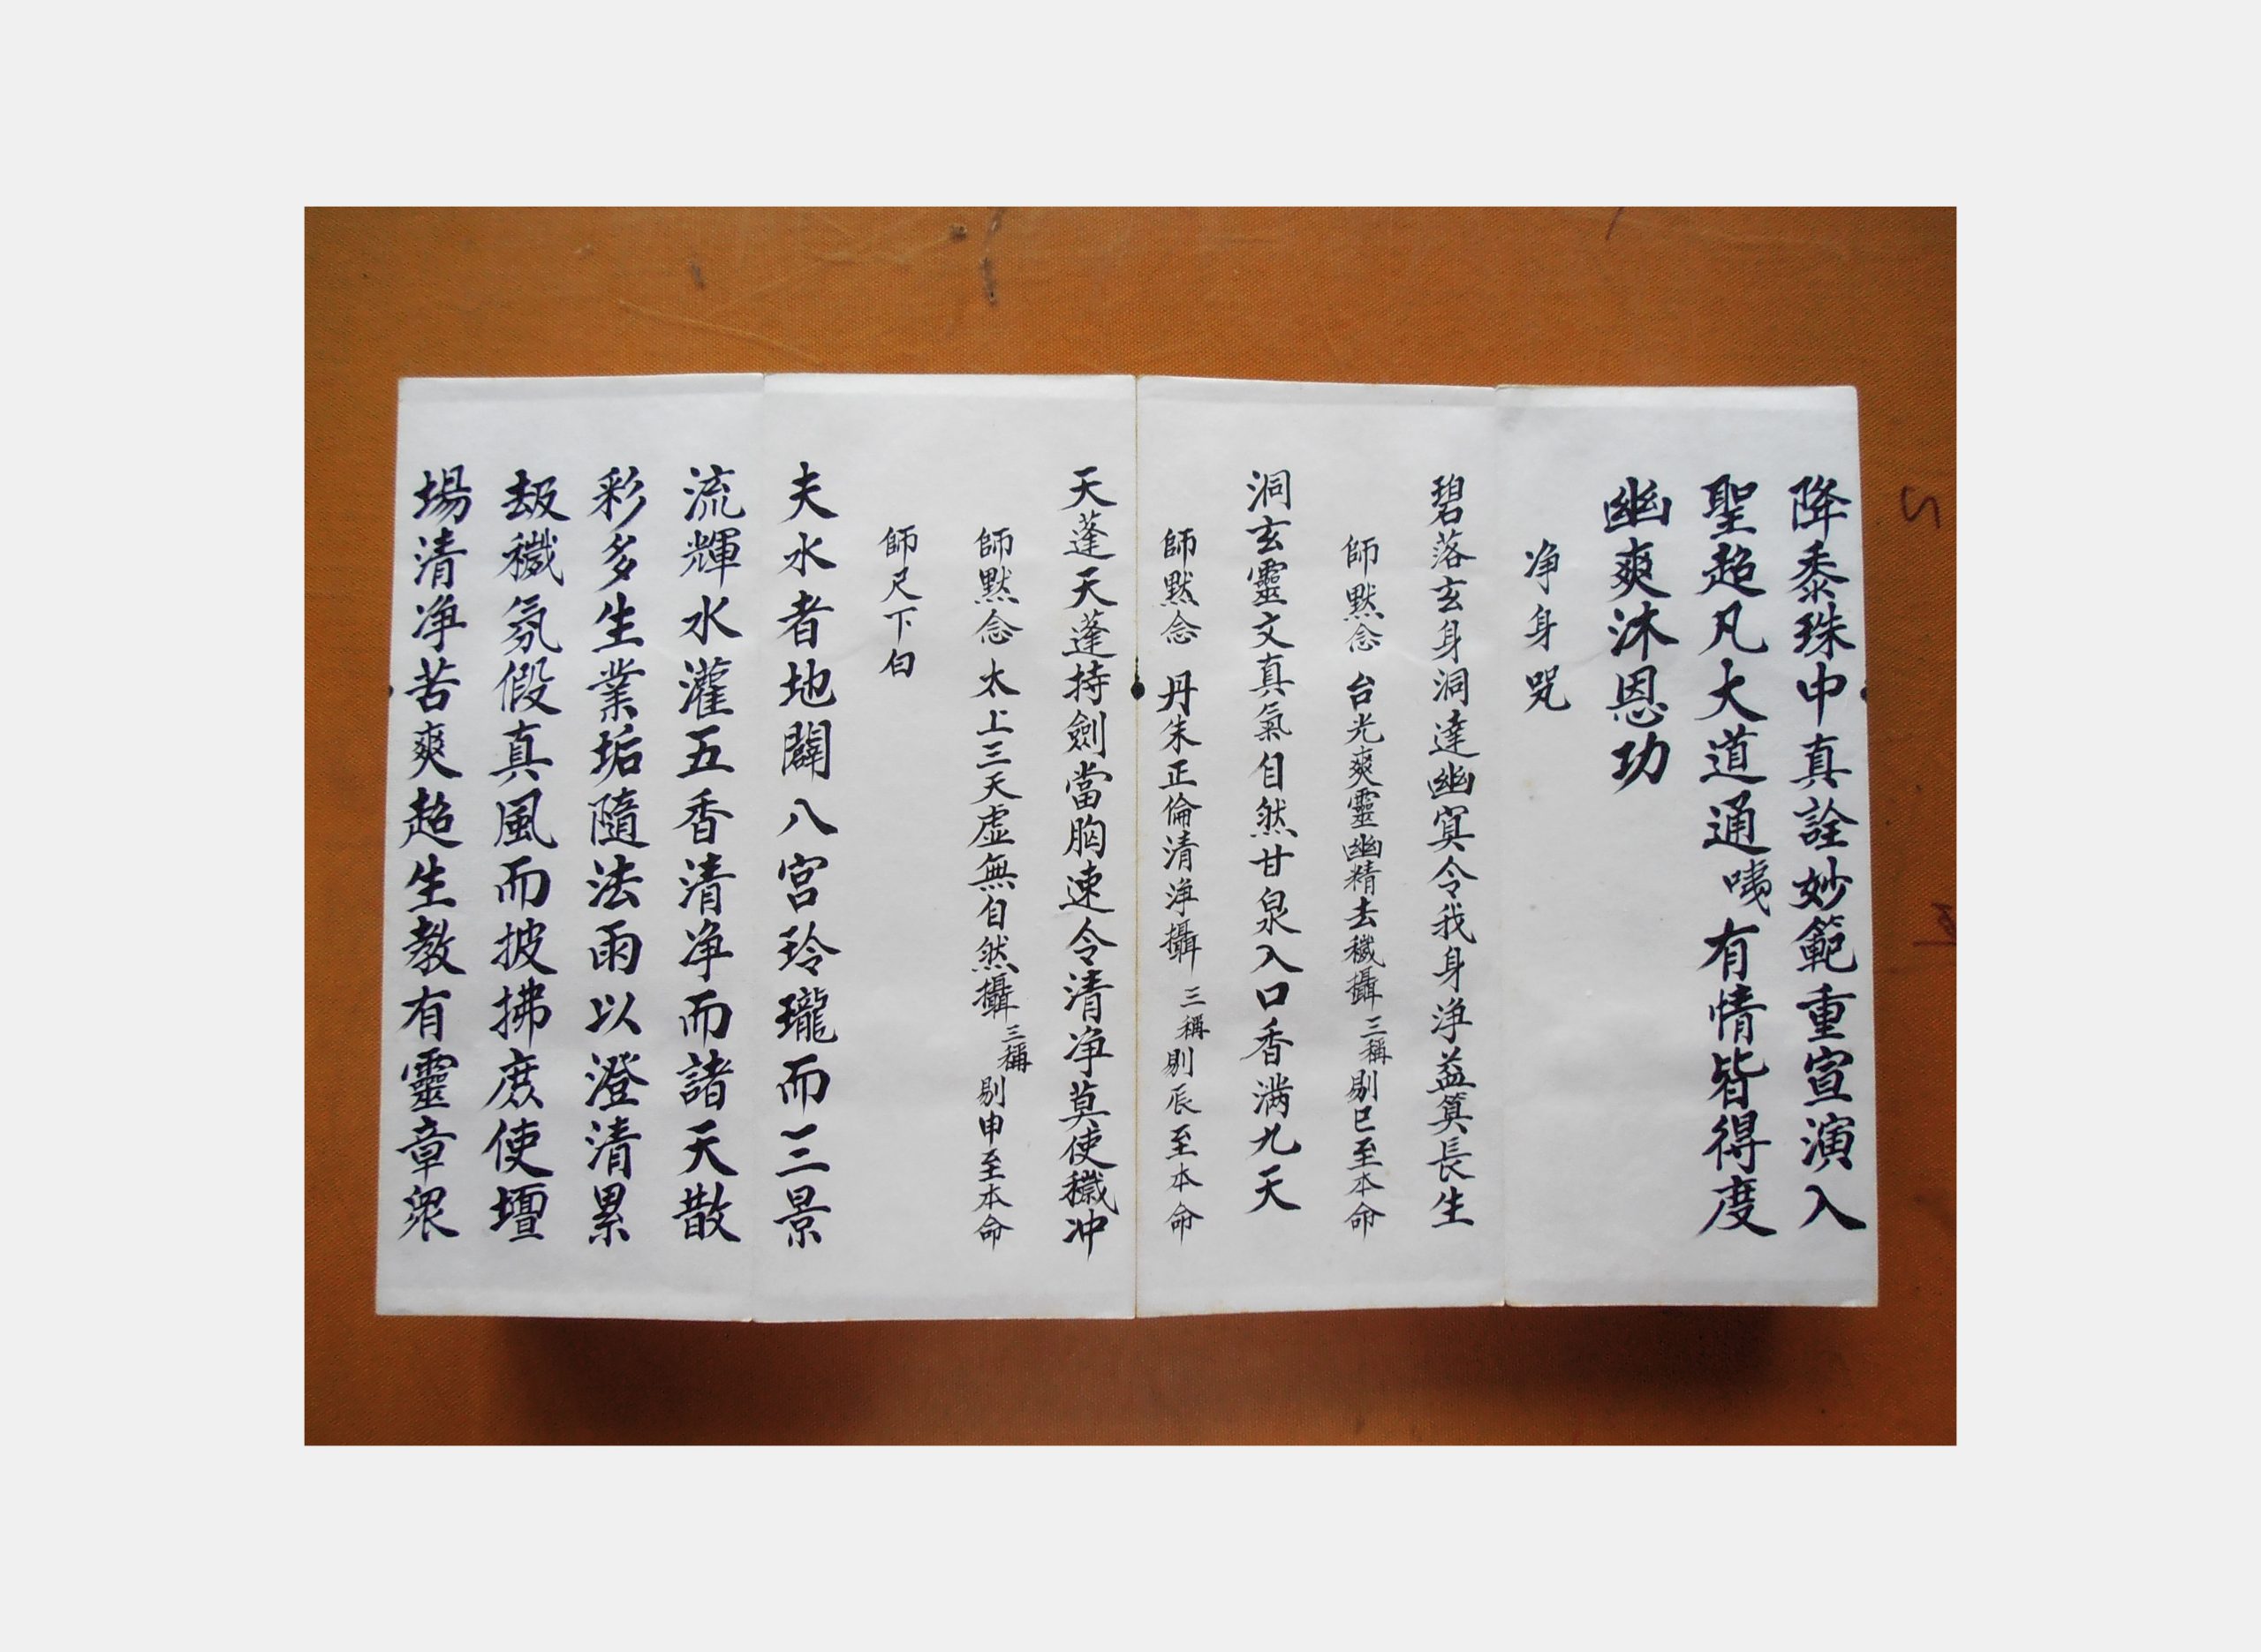 降黍珠中真詮妙範重宣演入
聖超凡大道通咦有情皆得度
幽爽沐恩功
净身咒
碧落玄身洞達幽冥令我身净益筭長生
師黙念 台光爽靈幽精去穢攝三稱剔巳至本命
洞玄靈文真氣自然甘泉入口香满九天
師黙念 丹朱正倫清净攝三稱剔辰至本命
天蓬天蓬持劍當胸速令清净莫使穢冲
師黙念 太上三天虚無自然攝三稱剔申至本命
師尺下白
夫水者地闢八宫玲瓏而三景
流輝水灌五香清净而諸天散
彩多生業垢隨法雨以澄清累
刼穢氛假真風而披拂庶使壇
場清净苦爽超生教有靈章眾